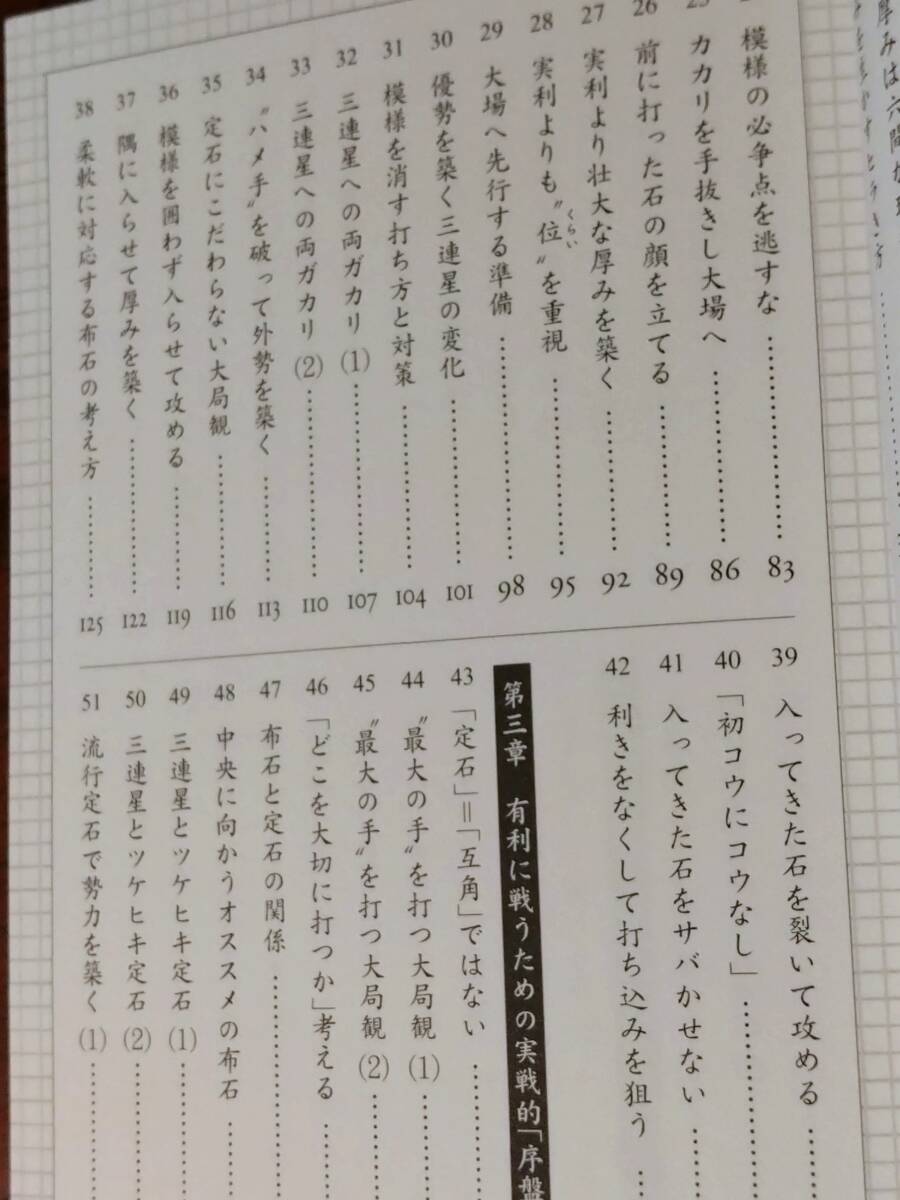 模様の必争点を逃すな……………… 83
25 カカリを手抜きし大場へ……………… 86
26 前に打った石の顔を立てる……………… 89
27 実利より壮大な厚みを築く……………… 92
28 実利よりも〝位〟を重視……………… 95
くらい
29 大場へ先行する準備……………… 98
30 優勢を築く三連星の変化……………… 101
31 模様を消す打ち方と対策……………… 104
32 三連星への両ガカリ(1)……………… 107
33 三連星への両ガカリ(2)……………… 110
34 〝ハメ手〟を破って外勢を築く……………… 113
35 定石にこだわらない大局観……………… 116
36 模様を囲わず入らせて攻める……………… 119
37 隅に入らせて厚みを築く……………… 122
38 柔軟に対応する布石の考え方……………… 125
39 入ってきた石を裂いて攻める……
40 「初コウにコウなし」……………
41 入ってきた石をサバかせない……
42 利きをなくして打ち込みを狙う……
第三章 有利に戦うための実戦的「序盤
43 「定石」＝「互角」ではない……………
44 〝最大の手〟を打つ大局観(1)……
45 〝最大の手〟を打つ大局観(2)……
46 「どこを大切に打つか」考える……
47 布石と定石の関係……………
48 中央に向かうオススメの布石……
49 三連星とツケヒキ定石(1)……
50 三連星とツケヒキ定石(2)……
51 流行定石で勢力を築く(1)……